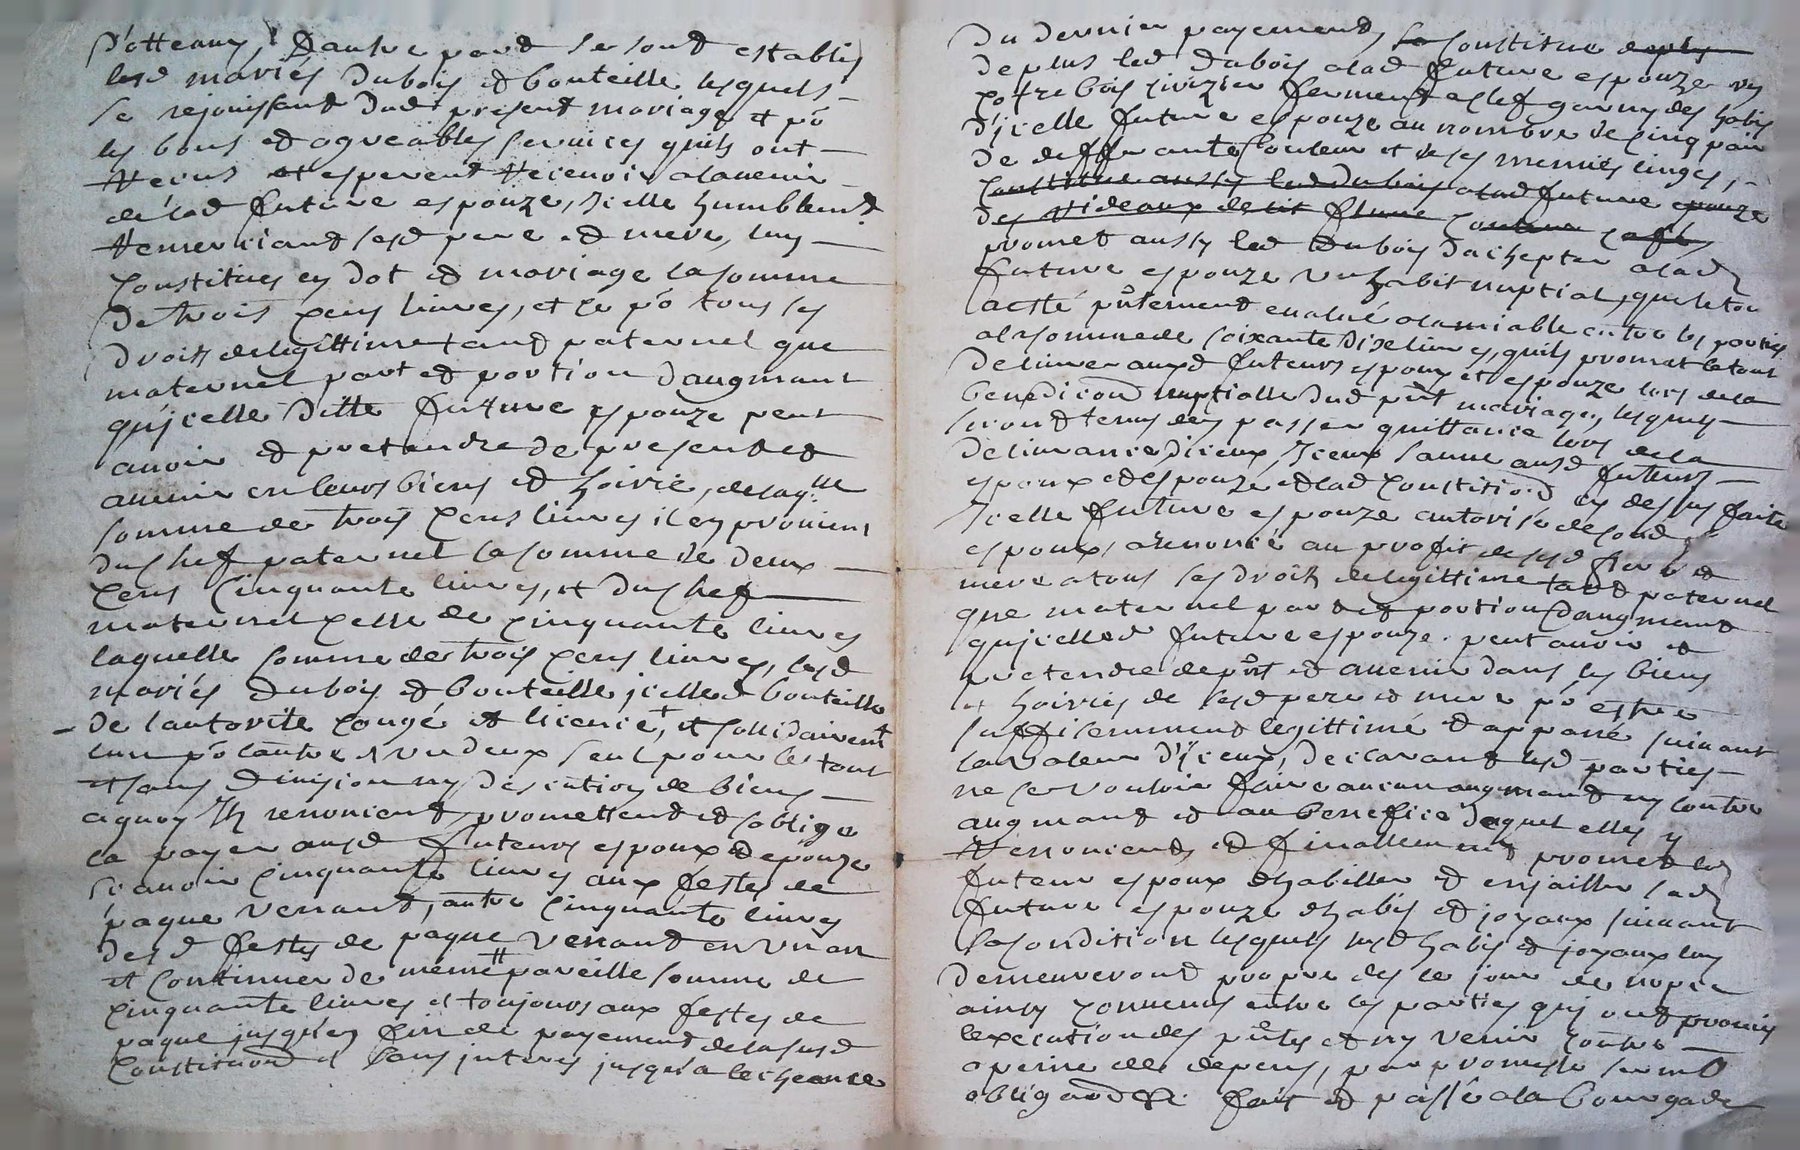 d'autre part se sont establis
lesd mariés Dubois et bouteille lesquels
se rejouissant dud present mariage et po
les bons et agreables services quils ont
receus et esperent recevoir alavenir
de lad future espouze, Icelle humblemt
remerciant sesd pere et mere, luy
constitues en dot et mariage la somme
de trois cens livres, et ce po tous ses
droits delegittime tant paternel que
maternel part et portion daugmant
qujcelle ditte future espouze peut
avoir et pretandre de present et
avenir en leurs biens et hoirie, delaqlle
somme de trois cens livres il en provient
du chef paternel la somme de deux
cens cinquante livres, et du chef
maternel celle de cinquante livres
laquelle somme de trois cens livres, lesd
mariés dubois et bouteille jcelle d bouteille
de lautorité congé et licence, et sollidairemt
lun po lautre un deux seul pour le tout
et sans division ny discution de biens
aquoy Ils renoncent, promettent et soblige
la payer ausd futeurs espoux et epouze
scavoir cinquante livres aux festes de
paque venant, autre cinquante livres
desd festes de paque venant en un an
et continuer de même pareille somme de
cinquante livres et toujours aux festes de
paque jusquen fin de payement delasusd
Constitution et sans jnteres jusqua lecheance
du dernier payement, se constitue de plus
de plus led dubois alad future espouze un
coffre bois fermant aclef garny des habis
d'jcelle future espouze au nombre de cinq pair
de differante couleur et de ses menues linges,
constitue aussy led dubois alad future epouze
des rideaux de lit
promet aussy led Dubois dachepter alad
future espouze un habit nuptial, que le tou
a esté pntement evalué alamiable entre les parties
alasomme de soixante dix livres, quils promet le tout
delivrer auxd futeurs espoux et espouze lors de la
benediction nuptialle dud pnt mariage, lesquels
seront tenus den passer quittance lors de la
delivrance d'iceux, Iceux sauve ausd futeurs
espoux et espouze, et lad constitiond cy dessus faite
Icelle future espouze autorisée de sond
espoux, a renoncé au profit de sesd pere et
mere atous ses droits delegittime tant paternel
que maternel part et portion daugmant
qujcelled future espouze peut avoir et
pretendre de pnt et avenir dans les biens
et hoiries de sesd pere et mere po estre
suffisemment legittimé et apparé suivant
la valeur d'jceux, declarant lesd parties
ne se vouloir faire aucun augmant ny contre
augmant et au benefice duquel elles y
renoncent, et finallement promet led
futeur espoux dhabiller et enjailler sad
future espouze dhabis et joyaux suivant
sa condition lesquels susd habis et joyaux luy
demeureront propre des le jour de nopce
ainsy convenus entre les parties quj ont promis
lexecution des pntes et ny venir contre
apeine des depens, par promesse sermt
obligaond &c. fait et passé ala bourgade